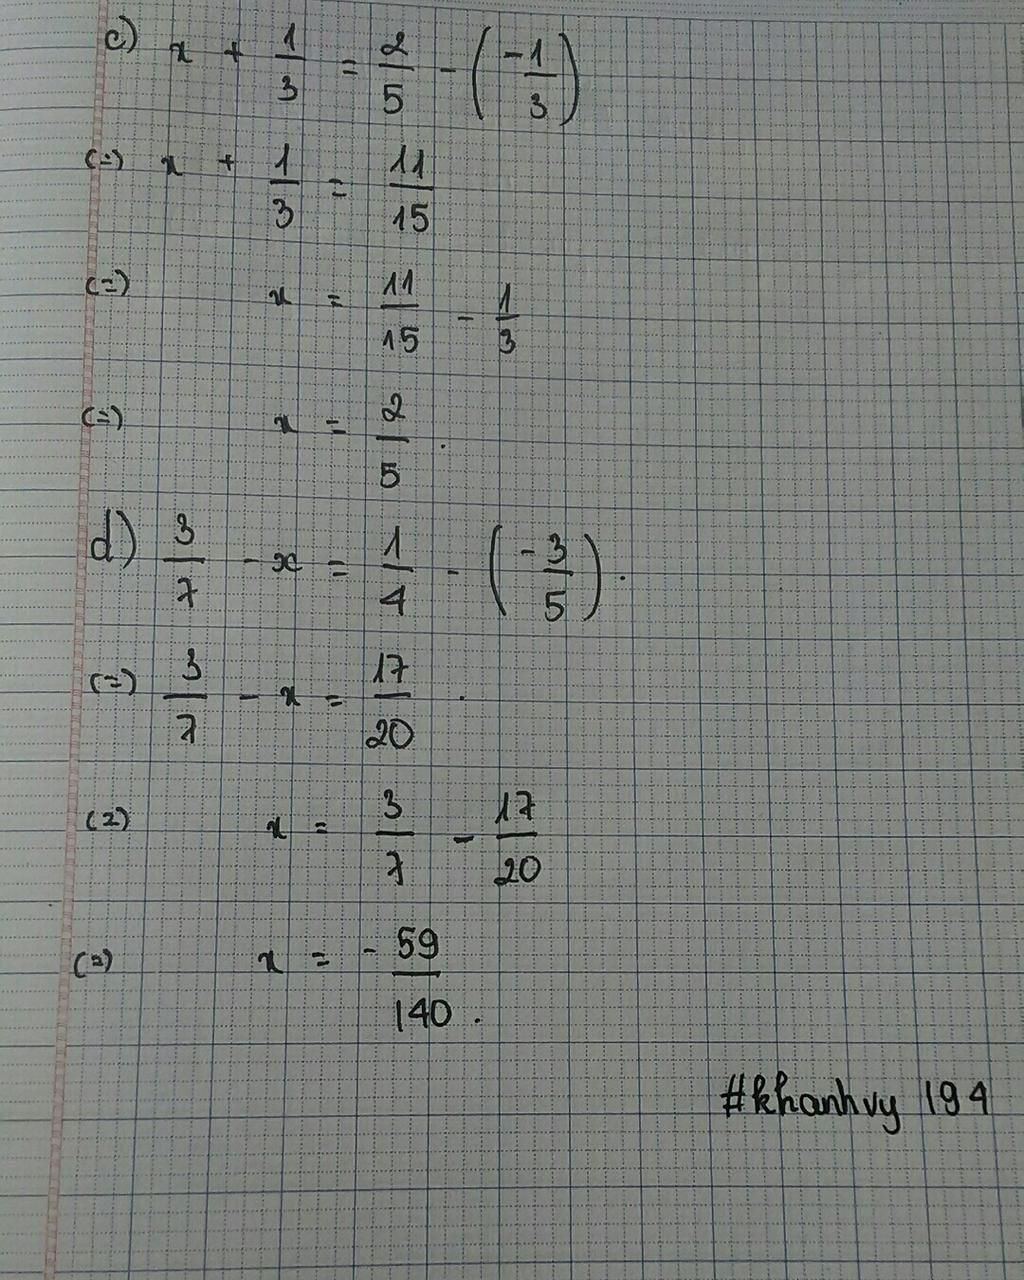 c) x + 1/3 = 2/5 - (-1/3)
(=) x + 1/3 = 11/15
(=) x = 11/15 - 1/3
(=) x = 2/5 .
d) 3/7 - x = 1/4 - (-3/5) .
(=) 3/7 - x = 17/20 .
(=) x = 3/7 - 17/20
(=) x = - 59/140 .
#khanhvy 194